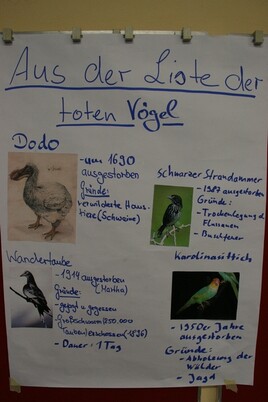 Aus der Liste der
toten Vögel
Dodo
- um 1690
ausgestorben
Gründe:
verwilderte Haus-
tiere (Schweine)
Schwarzer Strandammer
- 1987 ausgestorben
Gründe:
- Trockenlegung d.
Flussauen
- Buschfeuer
Wandertaube
- 1914 ausgestorben
(Martha)
Gründe:
- gejagt u. gegessen
(250.000
Tauben) erschossen (1896)
- Dauer: 1 Tag
Karolinasittich
- 1950er Jahre
ausgestorben
Gründe:
- Abholzung der
Wälder
- Jagd